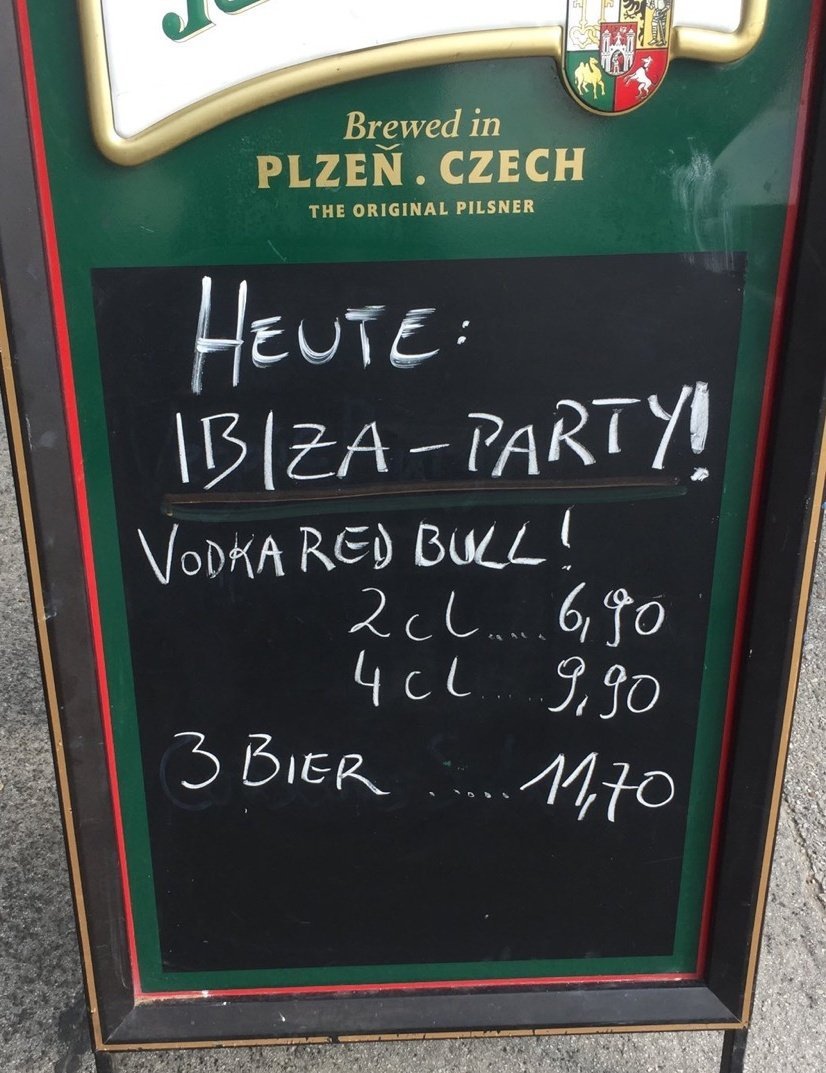 Brewed in
PLZEŇ . CZECH
THE ORIGINAL PILSNER
HEUTE:
IBIZA - PARTY!
VODKA RED BULL!
2 cl ..... 6,90
4 cl ..... 9,90
3 BIER ...... 11,70